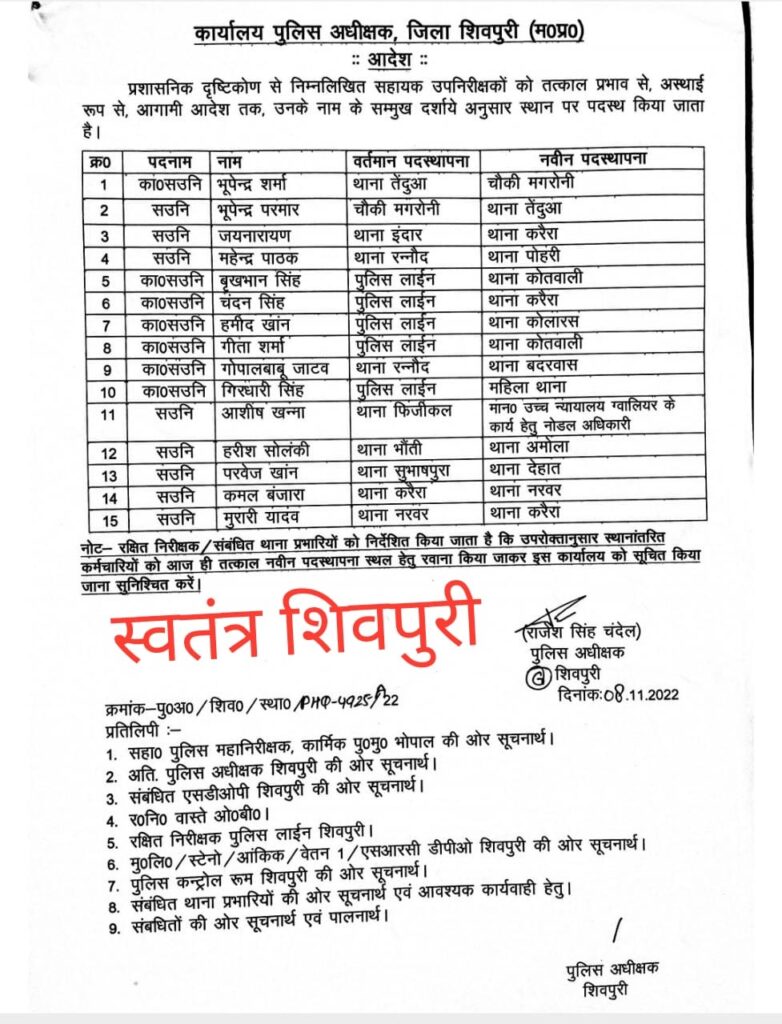 कार्यालय पुलिस अधीक्षक, जिला शिवपुरी (म0प्र0)
:: आदेश ::
प्रशासनिक दृष्टिकोण से निम्नलिखित सहायक उपनिरीक्षकों को तत्काल प्रभाव से, अस्थाई
रूप से, आगामी आदेश तक, उनके नाम के सम्मुख दर्शाये अनुसार स्थान पर पदस्थ किया जाता
है।
क्र0 पदनाम नाम वर्तमान पदस्थापना नवीन पदस्थापना
1 का0सउनि भूपेन्द्र शर्मा थाना तेंदुआ चौकी मगरोनी
2 सउनि भूपेन्द्र परमार चौकी मगरोनी थाना तेंदुआ
3 सउनि जयनारायण थाना इंदार थाना करैरा
4 सउनि महेन्द्र पाठक थाना रन्नौद थाना पोहरी
5 का0सउनि बृखभान सिंह पुलिस लाईन थाना कोतवाली
6 का0सउनि चंदन सिंह पुलिस लाईन थाना करैरा
7 का0सउनि हमीद खांन पुलिस लाईन थाना कोलारस
8 का0सउनि गीता शर्मा पुलिस लाईन थाना कोतवाली
9 का0सउनि गोपालबाबू जाटव थाना रन्नौद थाना बदरवास
10 का0सउनि गिरधारी सिंह पुलिस लाईन महिला थाना
11 सउनि आशीष खन्ना थाना फिजीकल मान0 उच्च न्यायालय ग्वालियर के
कार्य हेतु नोडल अधिकारी
12 सउनि हरीश सोलंकी थाना भौंती थाना अमोला
13 सउनि परवेज खांन थाना सुभाषपुरा थाना देहात
14 सउनि कमल बंजारा थाना करैरा थाना नरवर
15 सउनि मुरारी यादव थाना नरवर थाना करैरा
नोट– रक्षित निरीक्षक/संबंधित थाना प्रभारियों को निर्देशित किया जाता है कि उपरोक्तानुसार स्थानांतरित
कर्मचारियों को आज ही तत्काल नवीन पदस्थापना स्थल हेतु रवाना किया जाकर इस कार्यालय को सूचित किया
जाना सुनिश्चित करें।
स्वतंत्र शिवपुरी
(राजेश सिंह चंदेल)
पुलिस अधीक्षक
शिवपुरी
दिनांक:08.11.2022
क्रमांक-पु0अ0/शिव0/स्था0/PHQ-4925A/22
प्रतिलिपी :–
1. सहा0 पुलिस महानिरीक्षक, कार्मिक पु0मु0 भोपाल की ओर सूचनार्थ।
2. अति. पुलिस अधीक्षक शिवपुरी की ओर सूचनार्थ।
3. संबंधित एसडीओपी शिवपुरी की ओर सूचनार्थ।
4. र0नि0 वास्ते ओ0बी0।
5. रक्षित निरीक्षक पुलिस लाईन शिवपुरी।
6. मु0लि0/स्टेनो/आंकिक/वेतन 1/एसआरसी डीपीओ शिवपुरी की ओर सूचनार्थ।
7. पुलिस कन्ट्रोल रूम शिवपुरी की ओर सूचनार्थ।
8. संबंधित थाना प्रभारियों की ओर सूचनार्थ एवं आवश्यक कार्यवाही हेतु।
9. संबंधितों की ओर सूचनार्थ एवं पालनार्थ।
पुलिस अधीक्षक
शिवपुरी